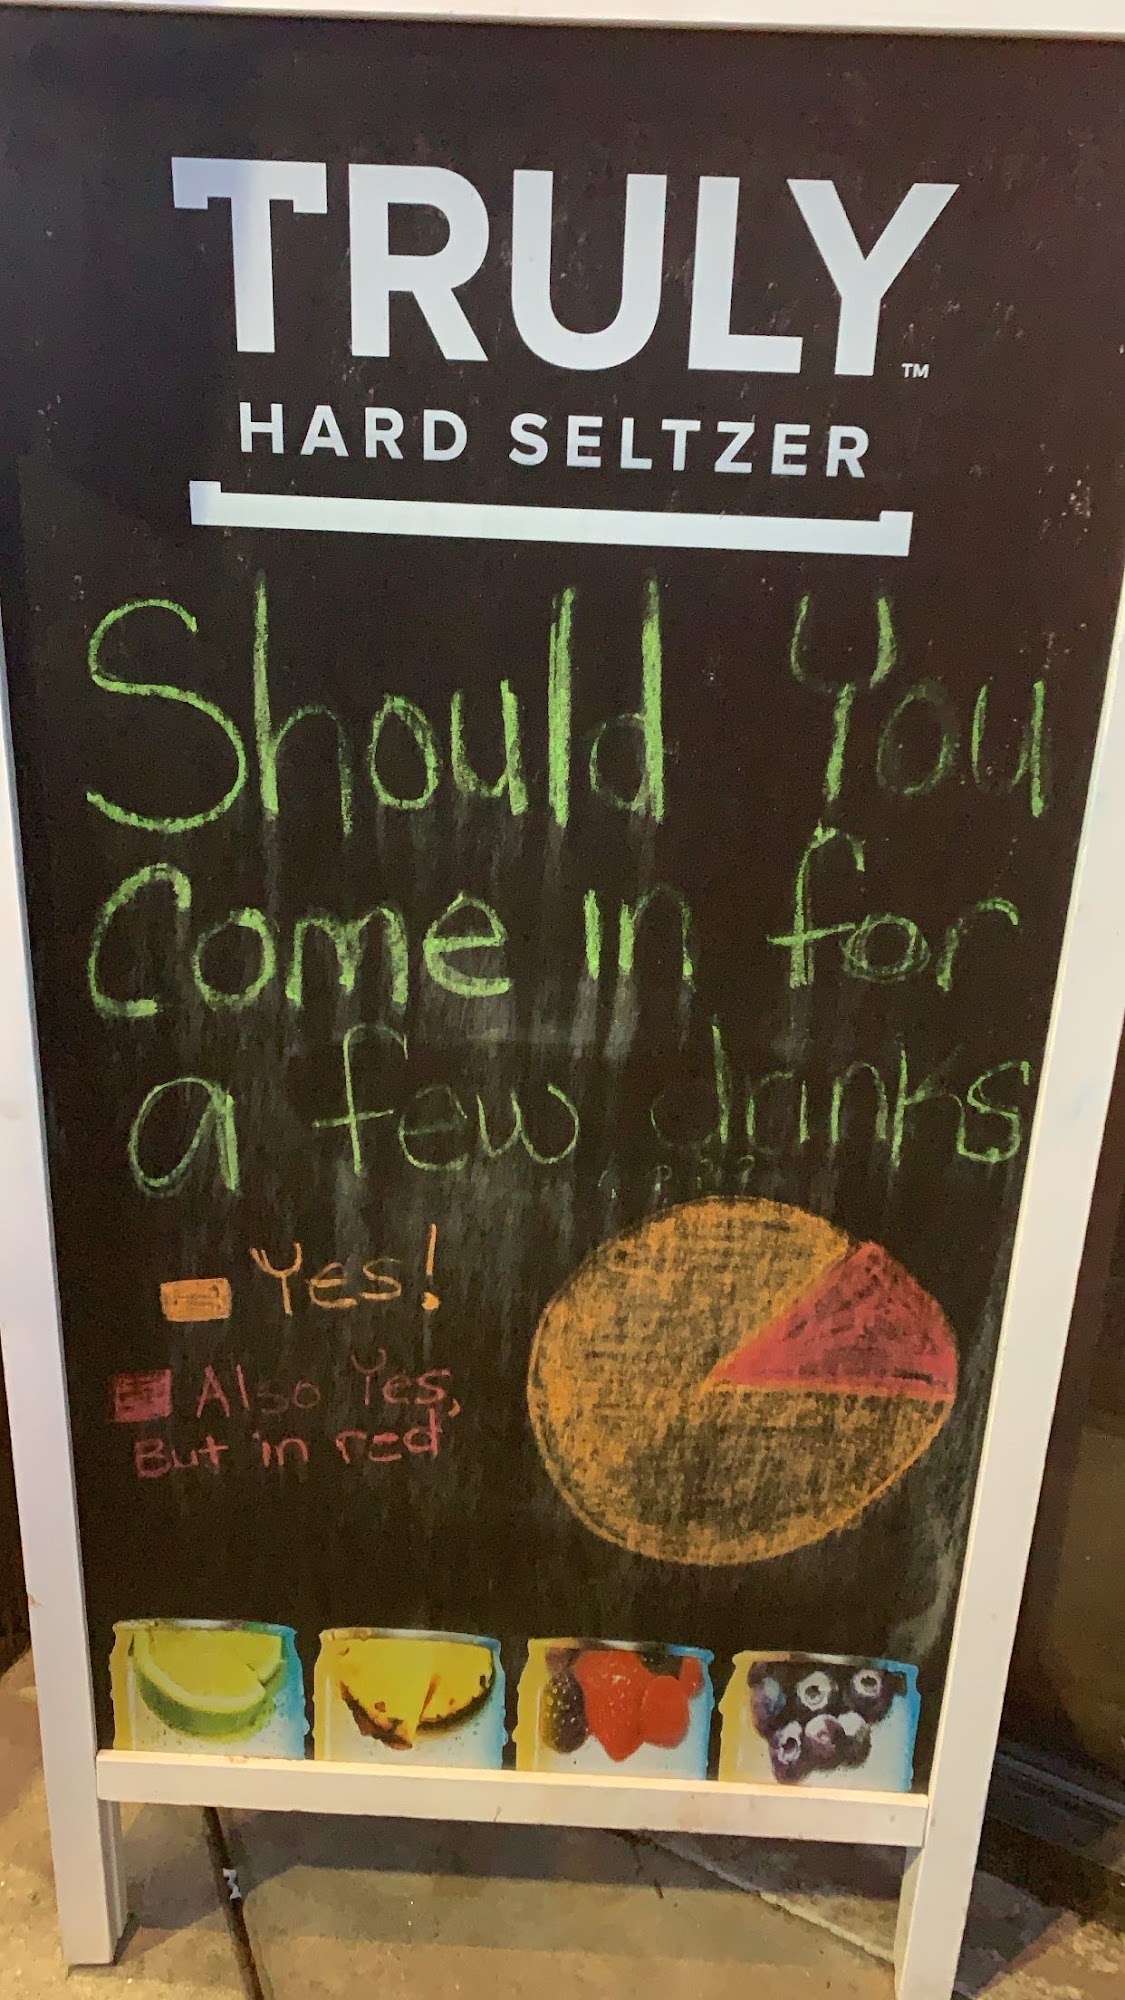 TRULY™
HARD SELTZER
Should You
Come in for
a few drinks
Yes!
Also Yes,
But in red